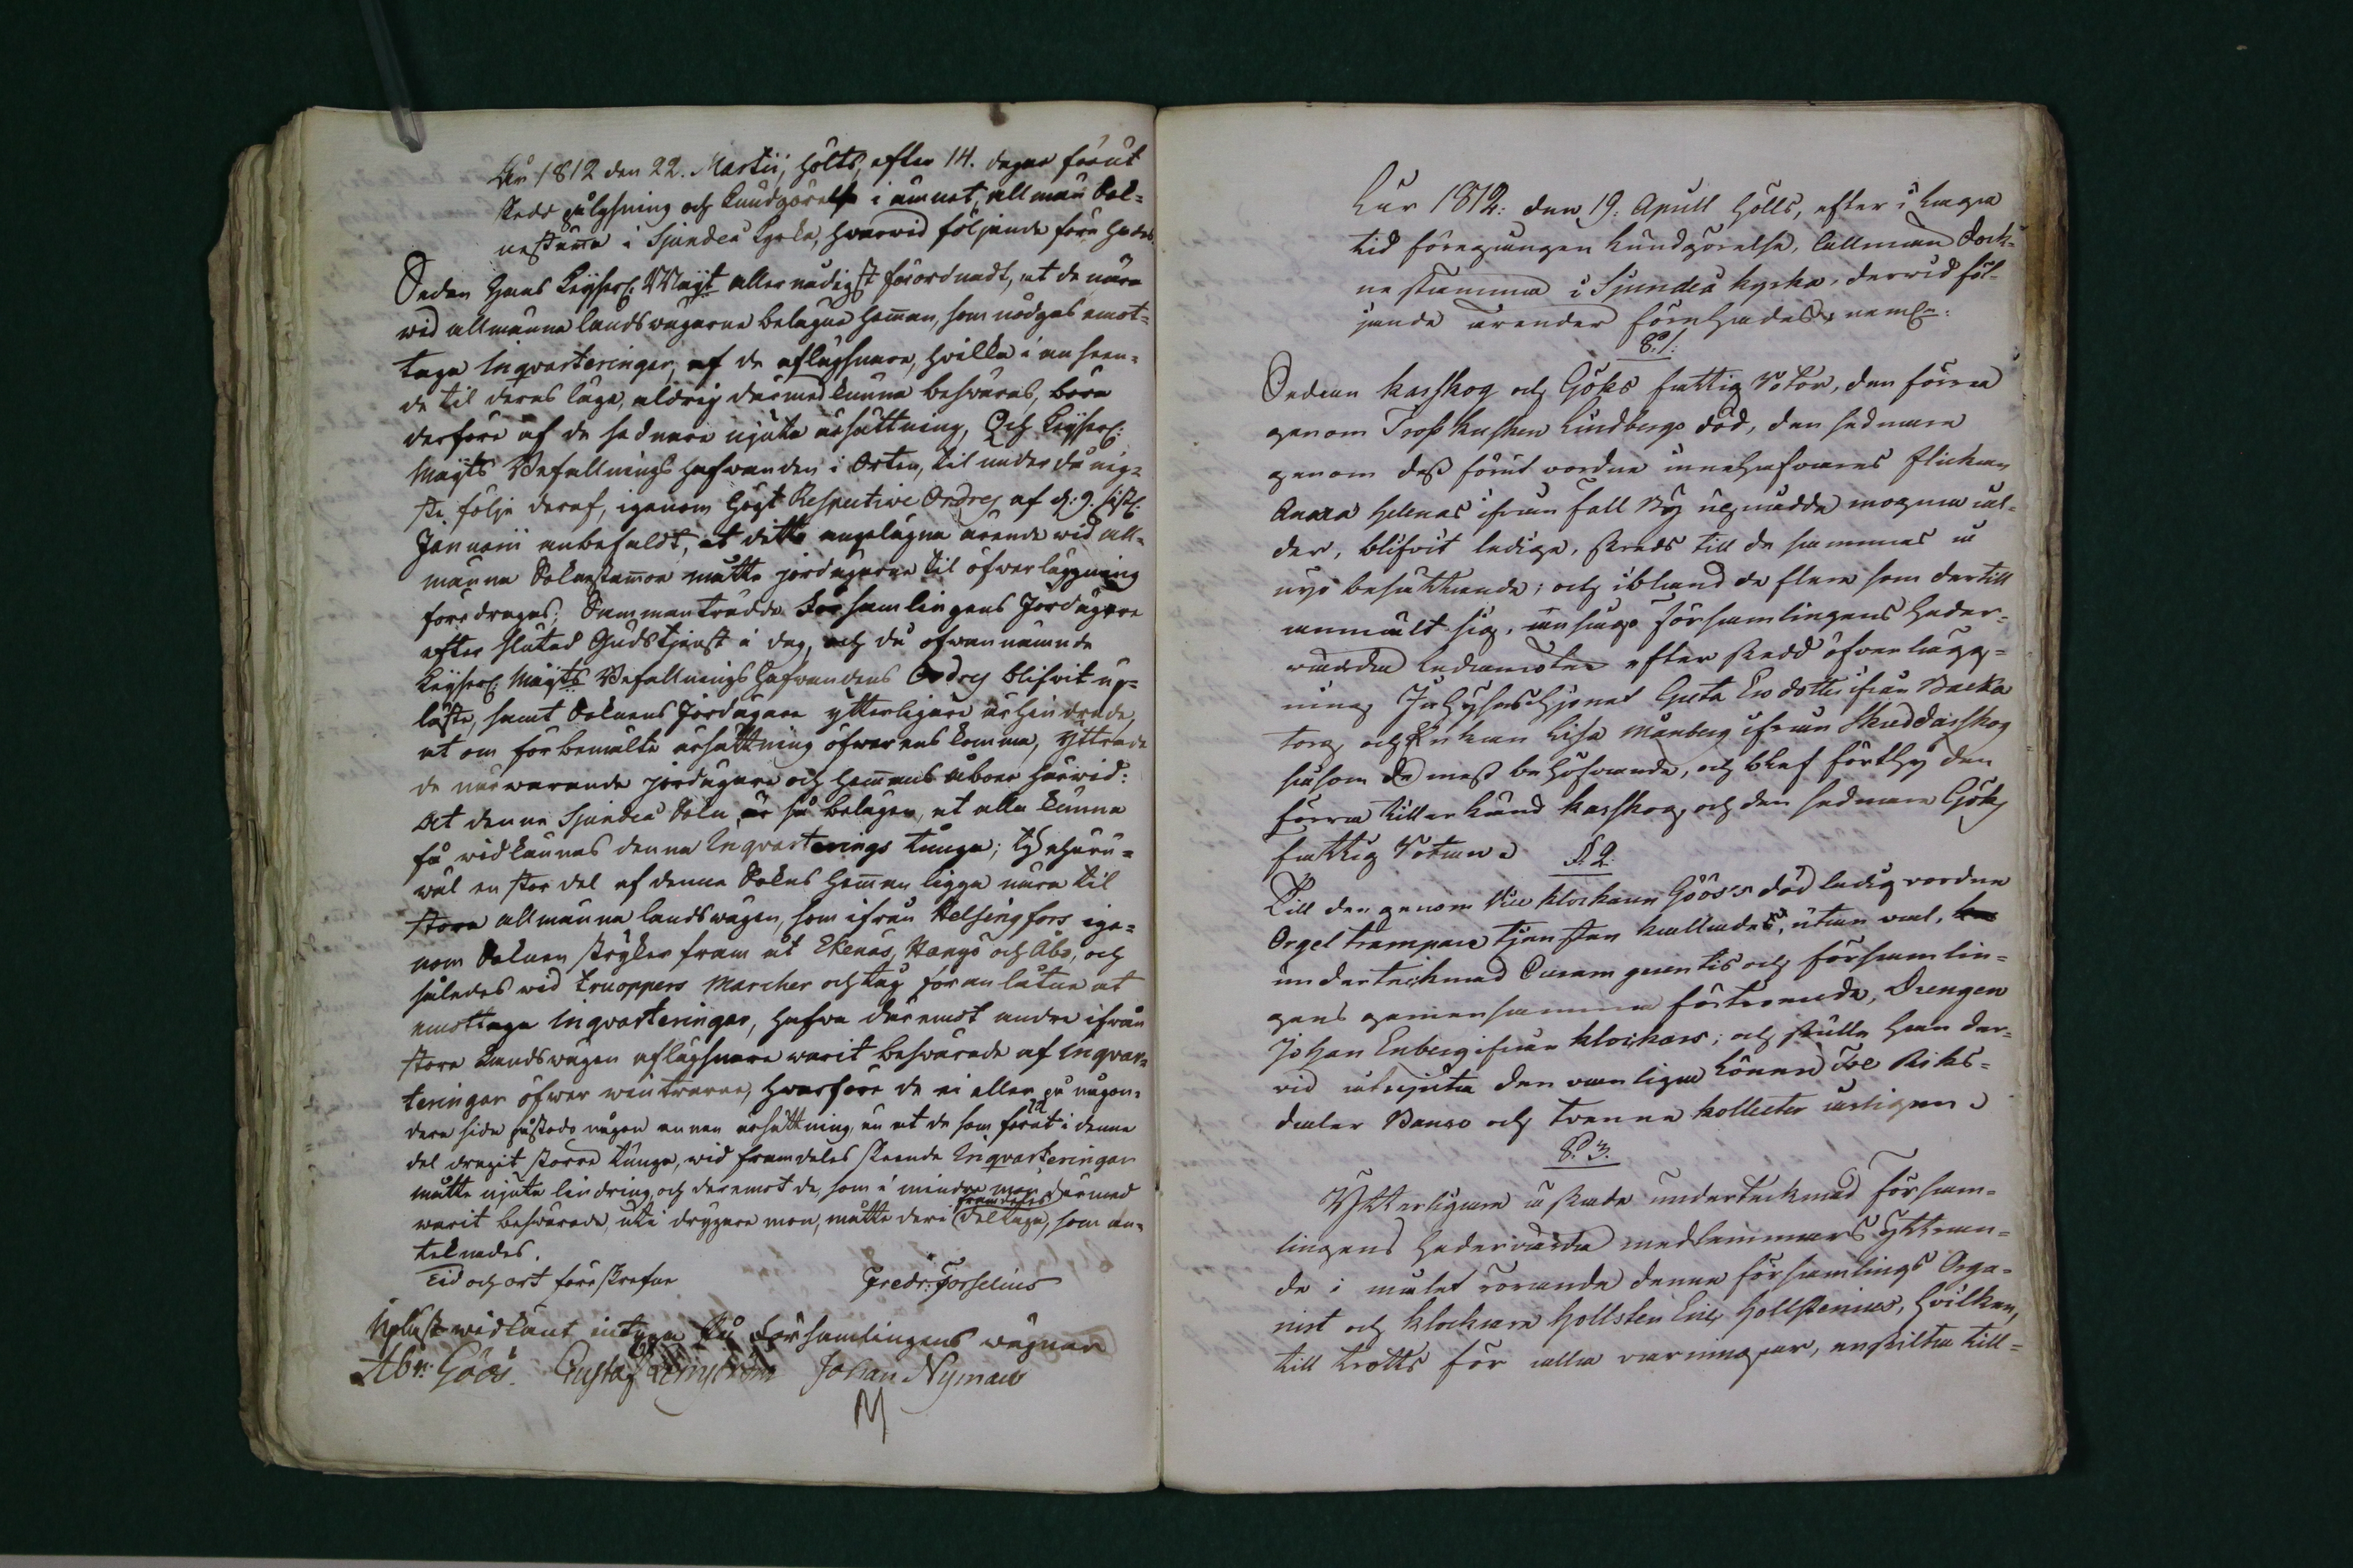 År 1812 den 22. Martii, hölts, efter 14. dagar förut
skedd pålysning och kundgörelse i ämnet, allmän Sok-
nestämma i Sjundeå Kyrka, hwarwid följande förehades.
Sedan Hans Keyserl. Maijt allernådigst förordnadt, at de nära
wid allmänna landswägarne belägne Hemman, som nödgas emot-
taga Inqvarteringar, af de aflägsnare, hwilka i anseen-
de til deras läge, aldrig därmed kunna beswäras, böra
derföre af de sednare njuta ersättning, Och Keyserl.
Maijts Befallningshafwanden i Orten, til underdånig-
ste följe deraf, igenom Högt Respective Ordres af d: 9. sistl.
Januarii anbefaldt, at detta angelägna ärende wid all-
männa Soknestämmor måtte jordägarne til öfwerläggning
föredragas; Sammanträdde Församlingens Jordägare
efter slutad Gudstjenst i dag, och då ofwannämnde
Keyserl. Maijts Befallningshafwandens Ordres blifwit up-
läste, samt Soknens Jordägare ytterligare erhindrade,
at om förbemälte ersättning öfwerenskomma, yttrade
de närwarande jordägare och Hemmans åboer härwid:
At denne Sjundeå Sokn är så belägen, at alla kunna
få widkännas denna Inqvarterings tunga; ty ehuru-
wäl en stor del af denna Sokns Hemman ligga nära til
stora allmänna landswägen, som ifrån Helsingfors ige-
nom Soknen stryker fram åt Ekenäs, Hangö och Åbo, och
således wid truoppers Marcher och tåg föranlåtne at
emottaga inqvarteringar, hafwa däremot andre ifrån
stora Landswägen aflägsnare warit beswärade af inqvar-
teringar öfwer wintrarne, hwarföre de ei eller på någon-
dera sida påstodo någon annan ersättning, än at de som förut i denne
del dragit större tunga, wid framdeles skeende Inqvarteringar
måtte njuta lindring, och deremot de, som i mindre mon därmed
warit beswärade, uti drygare mon, måtte deri framdeles deltaga, som an-
teknades.
Tid och ort föreskrefne
Fredr: Forselius
Upläst widkänt intyga På Församlingens wägnar
Abr: Göös. Gustaf Johan Nyman
M
År 1812: den 19: Aprill hölls, efter i laga
tid föregången kundgörelse, allmän Sock-
nestämma i Sjundeå kyrka, derwid föl-
jande ärender förehades, neml:
§. 1:
Sedan Karskog och Göks fattig Rotor, den förra
genom Tross kusken Lindbergs död, den sednare
genom dess förut vordne innehafvares flickan
Anna Helenas ifrån Fall By uppnådde mogna ål-
der, blifvit ledige, skreds till de sammas å
nyo besättande; och ibland de flere som dertill
anmält sig, ansågo församlingens heder-
värda Ledamöter efter skedd öfverlägg-
ning Inhyseshjonet Greta Ersdotter ifrån Backa
torp och Enkan Lisa Månberg ifrån Skräddarskog
såsom de mest behöfvande, och blef förthy den
förra tillerkänd Karskog, och den sednare Göks
fattig Rotan. §. 2.
Till den genom Vice klockaren Göös's död ledig vordne
Orgeltrampare tjensten kallades, utan val, 
undertecknad Curam gerentis och församlin-
gens gemensamma förtroende, Drengen
Johan Enberg ifrån Klockars; och skulle han der-
vid åtnjuta den vanliga Lönen Tre Riks-
daler Banco och tvenne kollecter årligen.
§. 3.
Ytterligare äskade undertecknad försam-
lingens hedervärda medlemmars yttran-
de i målet rörande denne församlings Orga-
nist och klockare Hollsten Eric Hollstenius, hvilken,
till trotts för alla varningar, enskilta till-